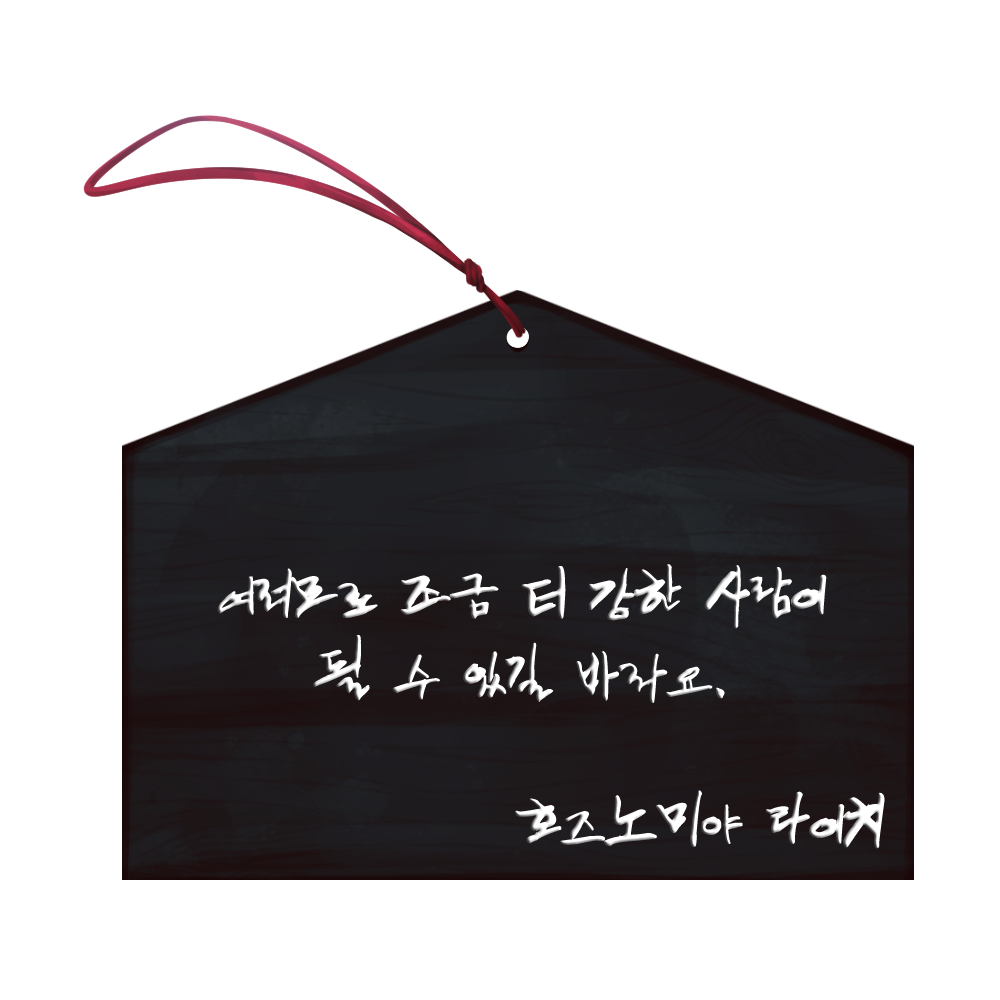 여러모로 조금 더 강한 사람이
될 수 있길 바라요.
호즈노미야 라이치